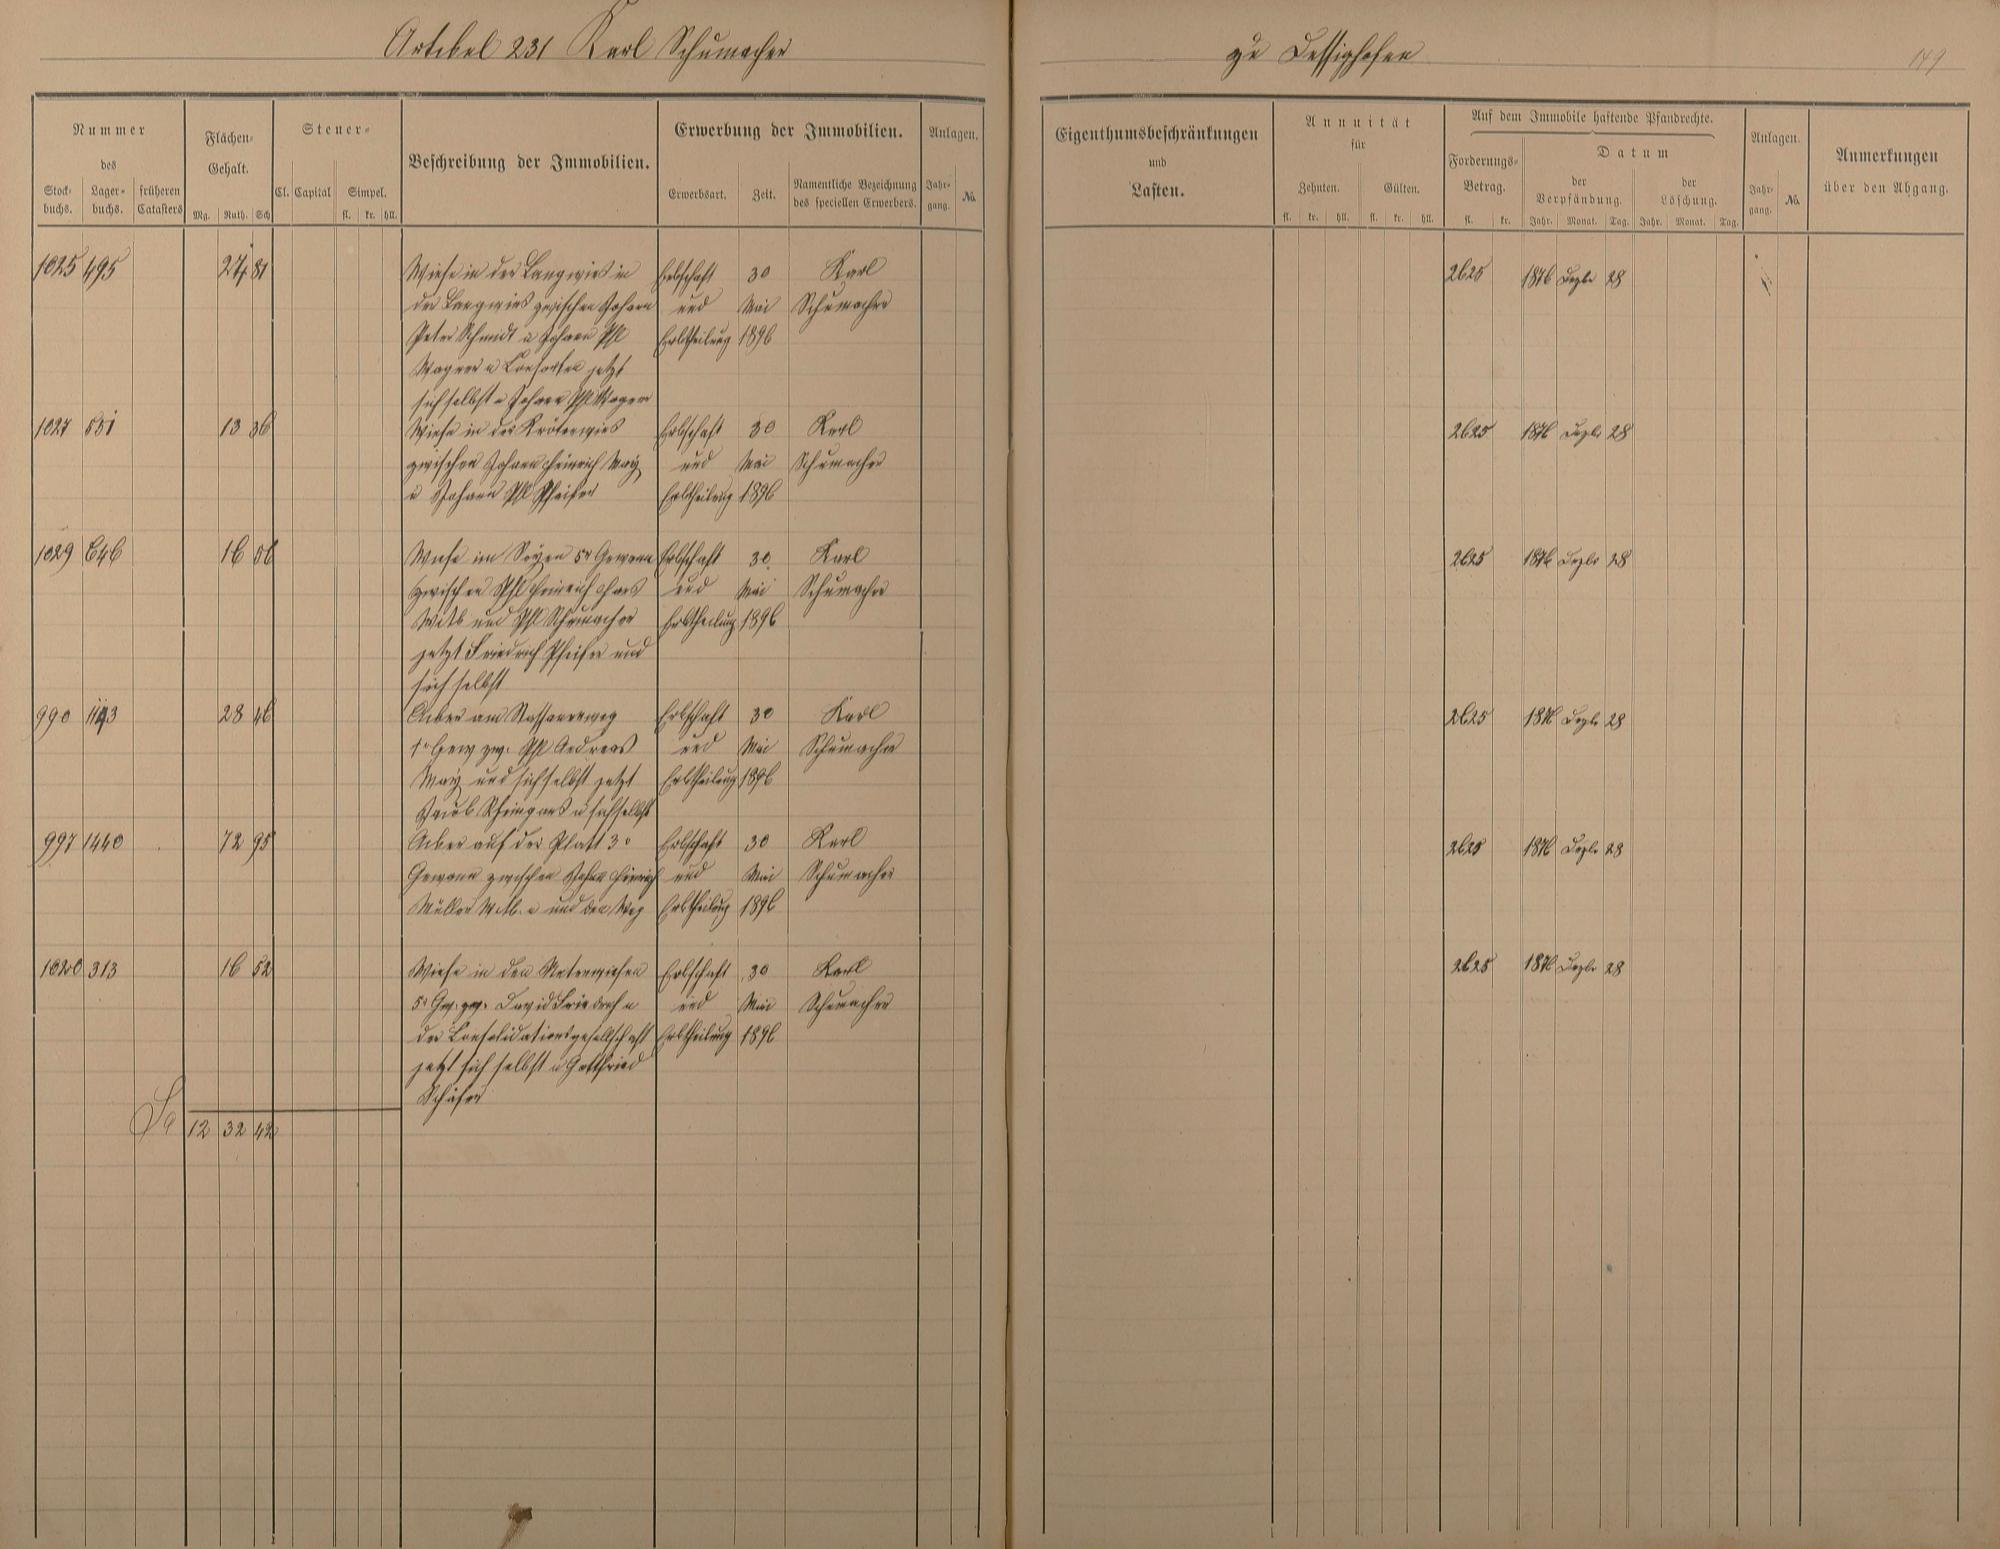 Artikel 231 Karl Schumacher
zu Dessighofen
149
Nummer
des
Stock-
buchs.
Lager-
buchs.
früheren
Catasters
Flächen-
Gehalt.
Mg. Ruth. Sch
Steuer-
Cl. Capital Simpel.
fl. kr. hll.
Beschreibung der Immobilien.
Erwerbung der Immobilien.
Erwerbsart. Zeit.
Namentliche Bezeichnung
des speciellen Erwerbers.
Anlagen.
Jahr-
gang.
No.
Eigenthumsbeschränkungen
und
Lasten.
Annuität
für
Zehnten. Gülten.
fl. kr. hll. fl. kr. hll.
Auf dem Immobile haftende Pfandrechte.
Forderungs-
Betrag.
fl. kr.
Datum
der
Verpfändung.
der
Löschung.
Jahr. Monat. Tag. Jahr. Monat. Tag.
Anlagen.
Jahr-
gang.
No.
Anmerkungen
über den Abgang.
1025 495 27 81 Wiese in der Langwies in Erbschaft 30 Karl 2625 1876 Dezbr 28
der Langwies zwischen Johann und Mai Schumacher
Peter Schmidt u Johann Phl Erbtheilung 1896
Wagner u Consorten jetzt
sich selbst u Johann Phl Wagner
1027 551 13 36 Wiese in der Krötenwies Erbschaft 30 Karl 2625 1876 Dezbr 28
zwischen Johann Heinrich May und Mai Schumacher
u Johann Phl Pfeifer Erbtheilung 1896
1029 646 16 56 Wiese im 5r Gewann Erbschaft 30 Karl 2625 1876 Dezbr 28
zwischen Phl Heinrich und Mai Schumacher
Wtb und Phl Schumacher Erbtheilung 1896
jetzt Friedrich Pfeifer und
sich selbst
990 1193 28 46 Acker am Nassauerweg Erbschaft 30 Karl 2625 1876 Dezbr 28
1r Gew zw. Phl Andreas und Mai Schumacher
May und sich selbst jetzt Erbtheilung 1896
Jacob u sich selbst
997 1440 72 95 Acker auf der Platt 3r Erbschaft 30 Karl 2625 1876 Dezbr 28
Gewann zwischen Johann Heinrich und Mai Schumacher
Müller Wtb. u und den Weg Erbtheilung 1896
1020 313 16 52 Wiese in den Erbschaft 30 Karl 2625 1876 Dezbr 28
5r Gw. zw. David Friedrich u und Mai Schumacher
der Consolidationsgesellschaft Erbtheilung 1896
jetzt sich selbst u Gottfried
Schäfer
Sa 12 32 42